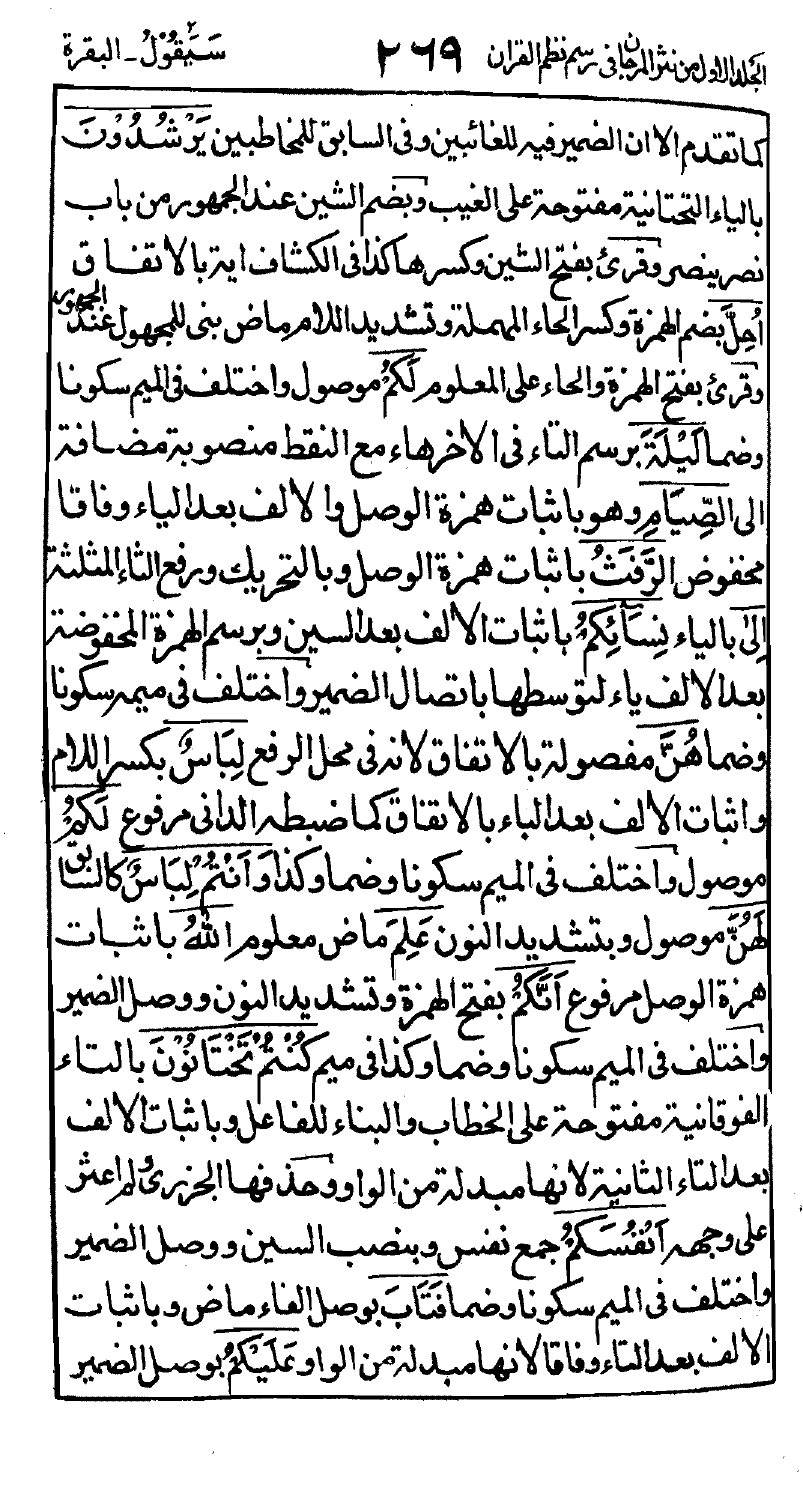 الجلد الاول من نثر المرجان فى رسم نظم القران ۲۶۹ سَيَقُوْلُ ۲ - البقرة
كما تقدم الا ان الضمير فيه للغائبين وفى السابق للمخاطبين يَرْشُدُوْنَ
بالياء التحتانية مفتوحة على الغيب وبضم الشين عند الجمهور من باب
نصر ينصر وقرئ بفتح الشين وكسرها كذا فى الكشاف اية بالاتفاق
اُحِلَّ بضم الهمزة وكسر الحاء المهملة وتشديد اللام ماض بنى للمجهول عند الجمهور
وقرئ بفتح الهمزة والحاء على المعلوم لَكُمْ موصول واختلف فى الميم سكونا
وضما لَيْلَةَ برسم التاء فى الاخر هاء مع النقط منصوبة مضافة
الى الصِّيَامِ وهو باثبات همزة الوصل والالف بعد الياء وفاقا
مخفوض الرَّفَثُ باثبات همزة الوصل وبالتحريك ورفع الثاء المثلثة
اِلٰى بالياء نِسَآئِكُمْ باثبات الالف بعد السين وبرسم الهمزة المخفوضة
بعد الالف ياء لتوسطها باتصال الضمير واختلف فى ميمه سكونا
وضما هُنَّ مفصولة بالاتفاق لانه فى محل الرفع لِبَاسٌ بكسر اللام
واثبات الالف بعد الباء بالاتفاق كما ضبطه الدانى مرفوع لَكُمْ
موصول واختلف فى الميم سكونا وضما وكذا وَاَنْتُمْ لِبَاسٌ كالسابق
لَهُنَّ موصول وبتشديد النون عَلِمَ ماض معلوم اللّٰهُ باثبات
همزة الوصل مرفوع اَنَّكُمْ بفتح الهمزة وتشديد النون ووصل الضمير
واختلف فى الميم سكونا وضما وكذا فى ميم كُنْتُمْ تَخْتَانُوْنَ بالتاء
الفوقانية مفتوحة على الخطاب والبناء للفاعل وباثبات الالف
بعد التاء الثانية لانها مبدلة من الواو وحذفها الجزرى ولم اعثر
على وجهه اَنْفُسَكُمْ جمع نفس وبنصب السين ووصل الضمير
واختلف فى الميم سكونا وضما فَتَابَ بوصل الفاء ماض وباثبات
الالف بعد التاء وفاقا لانها مبدلة من الواو عَلَيْكُمْ بوصل الضمير